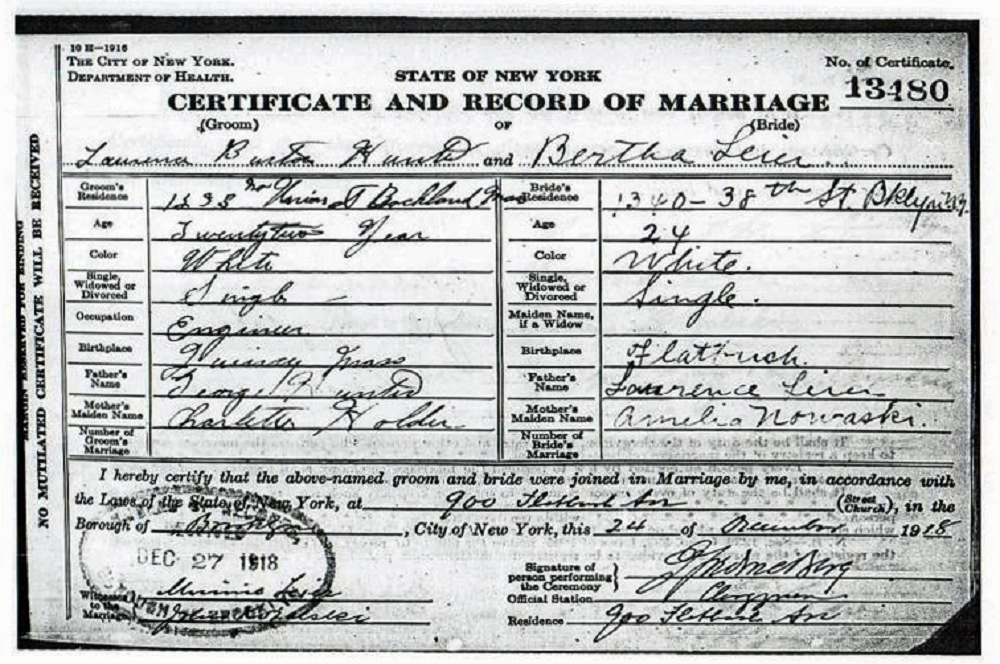 10 H—1916
THE CITY OF NEW YORK.
DEPARTMENT OF HEALTH.
No. of Certificate.
13480
STATE OF NEW YORK
CERTIFICATE AND RECORD OF MARRIAGE
(Groom) OF (Bride)
and Bertha
Groom's Residence Union Rockland Mass Bride's Residence 1340-38th St. Bklyn N.Y.
Age Twentytwo Year Age 24
Color White Color White.
Single, Widowed or Divorced Single Single, Widowed or Divorced Single.
Occupation Engineer Maiden Name, if a Widow
Birthplace Quincy Mass Birthplace Flatbush.
Father's Name George Father's Name Lawrence
Mother's Maiden Name Charlotte Holder Mother's Maiden Name Amelia Nowaski.
Number of Groom's Marriage Number of Bride's Marriage
I hereby certify that the above-named groom and bride were joined in Marriage by me, in accordance with
the Laws of the State of New York, at 900 Av (Street Church), in the
Borough of Brooklyn, City of New York, this 24 of December 1918
DEC 27 1918
Signature of person performing the Ceremony
Witnesses to the Marriage Minnie
Official Station Clergyman
Residence 900 Av
NO MUTILATED CERTIFICATE WILL BE RECEIVED
MARGIN RESERVED FOR BINDING